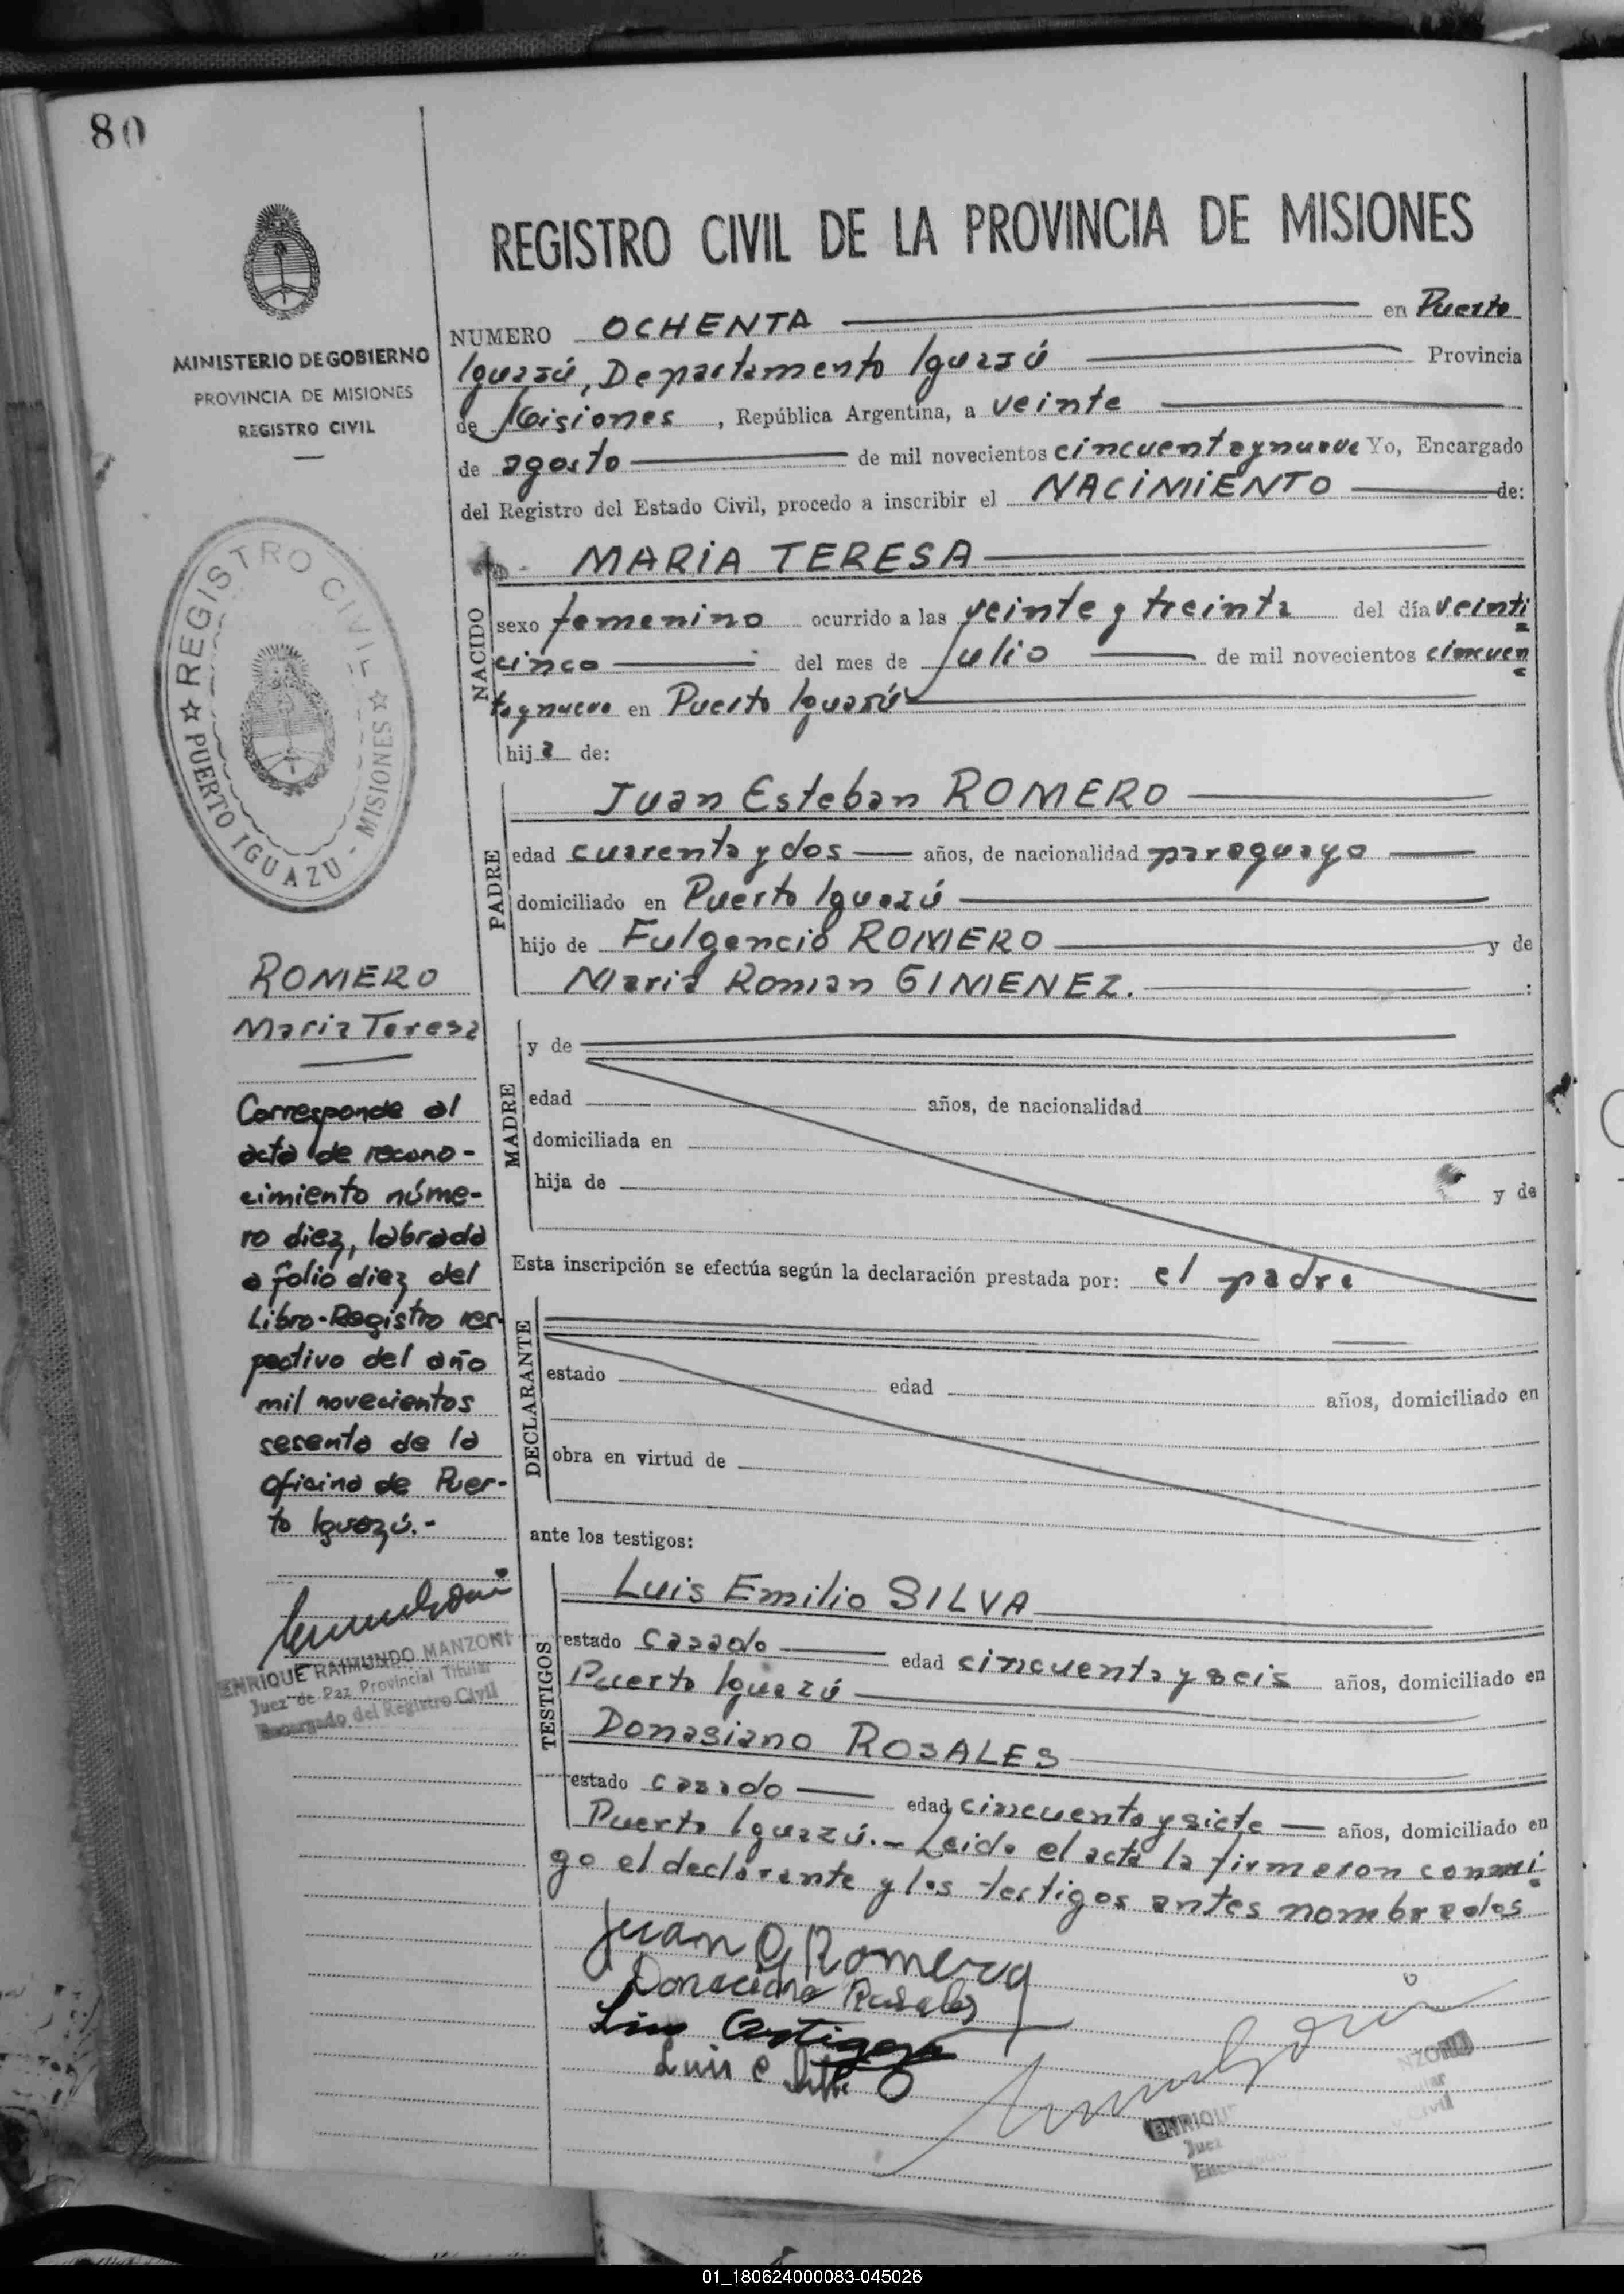 80
MINISTERIO DE GOBIERNO
PROVINCIA DE MISIONES
REGISTRO CIVIL
REGISTRO CIVIL
PUERTO IGUAZU - MISIONES
ROMERO
Maria Teresa
Corresponde al
acta de recono-
cimiento núme-
ro diez, labrada
a folio diez del
Libro-Registro res-
pectivo del año
mil novecientos
sesenta de la
oficina de Puer-
to Iguazú.-
ENRIQUE RAIMUNDO MANZONI
Juez de Paz Provincial Titular
Encargado del Registro Civil
REGISTRO CIVIL DE LA PROVINCIA DE MISIONES
NUMERO OCHENTA en Puerto
Iguazú, Departamento Iguazú Provincia
de Misiones, República Argentina, a veinte
de agosto de mil novecientos cincuentaynueve Yo, Encargado
del Registro del Estado Civil, procedo a inscribir el NACIMIENTO de:
NACIDO
MARIA TERESA
sexo femenino ocurrido a las veinte y treinta del día veinti
cinco del mes de Julio de mil novecientos cincuen
taynueve en Puerto Iguazú
hija de:
PADRE
Juan Esteban ROMERO
edad cuarenta y dos años, de nacionalidad paraguayo
domiciliado en Puerto Iguazú
hijo de Fulgencio ROMERO y de
Maria Roman GIMENEZ. :
MADRE
y de
edad años, de nacionalidad
domiciliada en
hija de y de
Esta inscripción se efectúa según la declaración prestada por: el padre
DECLARANTE
estado edad años, domiciliado en
obra en virtud de
ante los testigos:
TESTIGOS
Luis Emilio SILVA
estado casado edad cincuenta y seis años, domiciliado en
Puerto Iguazú
Donasiano ROSALES
estado casado edad cincuenta y siete años, domiciliado en
Puerto Iguazú.- Leido el acta la firmaron conmi
go el declarante y los testigos antes nombrados
Juan E Romero
Donaciano Rosales
Luis
Luis e
ENRIQUE
Juez
NZONI
Civil
01_180624000083-045026